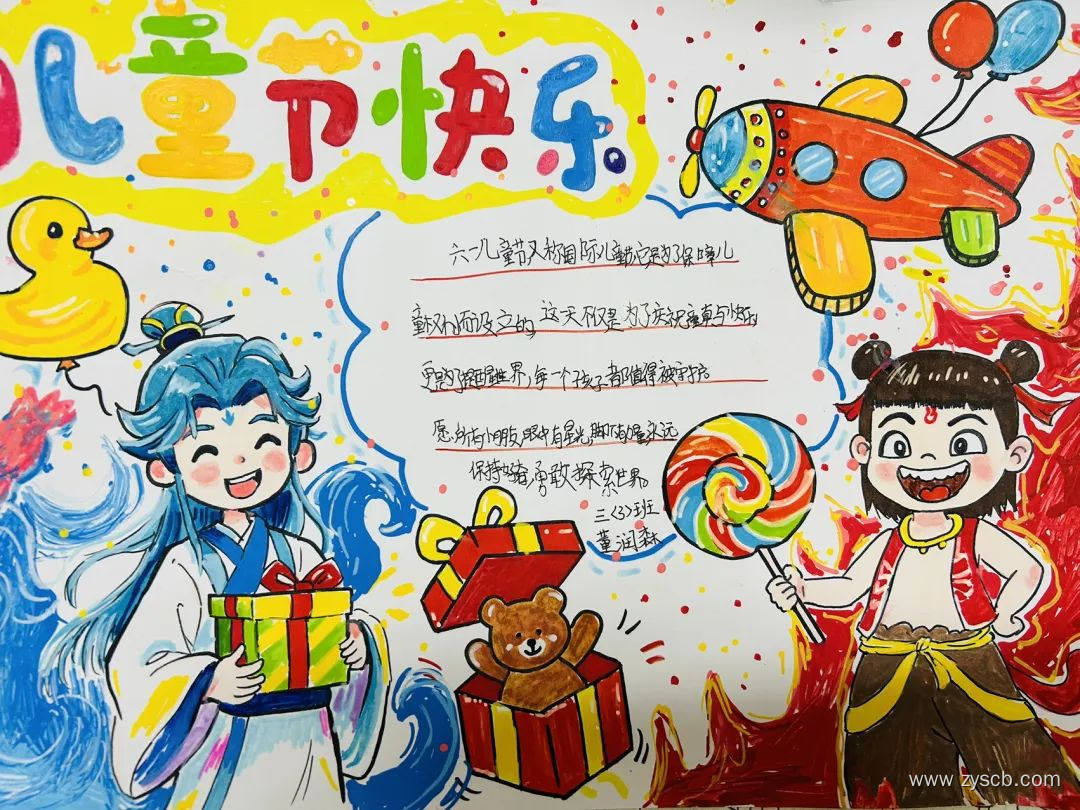 儿童节快乐
六一儿童节又称国际儿童节,它是为了保障儿
童权利而设立的,这天不仅是为了庆祝童真与快乐
更是为了提醒世界,每一个孩子都值得被守护
愿所有小朋友,眼中有星光,脚下有力量,永远
保持好奇,勇敢探索世界
三〈3〉班
董润森
www.zyscb.com